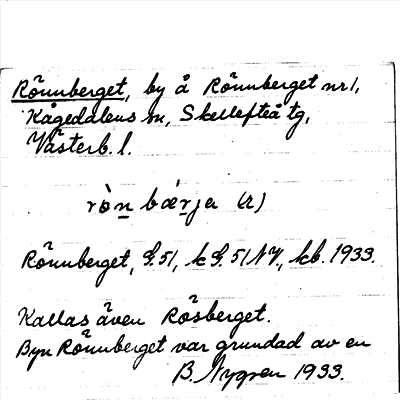 Rönnberget, by å Rönnberget nr 1,
Kågedalens sn, Skellefteå tg,
Västerb. l.
rò̀n bæ̀rja (2)
Rönnberget, G.51, k G.51 NV, kb. 1933.
Kallas även Rösberget.
Byn Rönnberget var grundad av en
B. Nygren 1933.